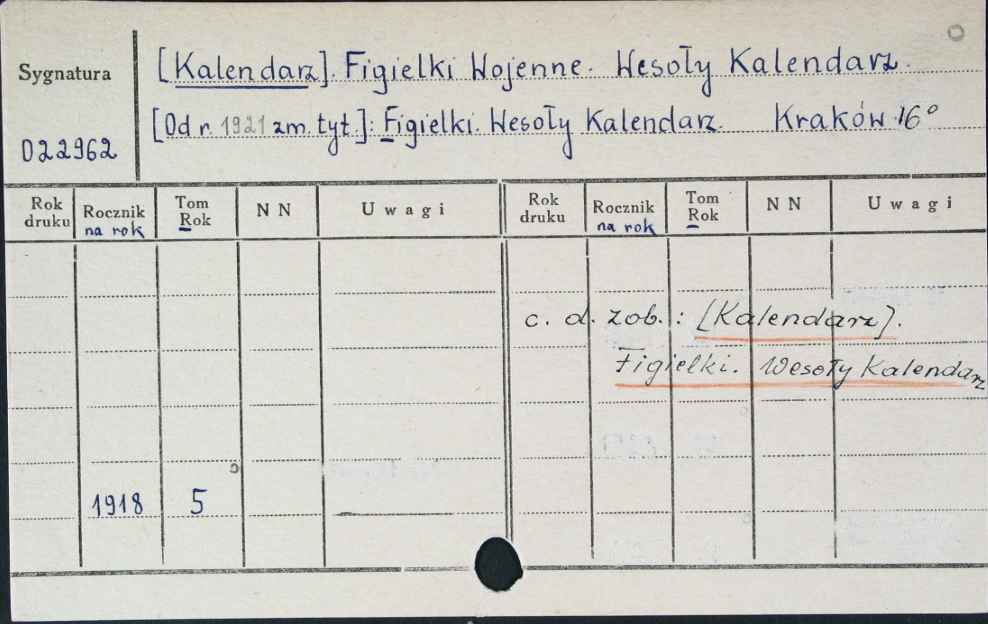 Sygnatura
[Kalendarz]. Figielki Wojenne. Wesoły Kalendarz.
[Od r. 1921 zm. tyt.]: Figielki. Wesoły Kalendarz. Kraków 16°
022962
Rok druku Rocznik na rok Tom Rok NN Uwagi Rok druku Rocznik na rok Tom Rok NN Uwagi
c. d. zob.: [Kalendarz].
Figielki. Wesoły Kalendarz
1918 5